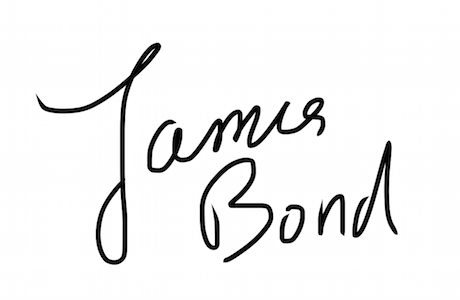 James
Bond